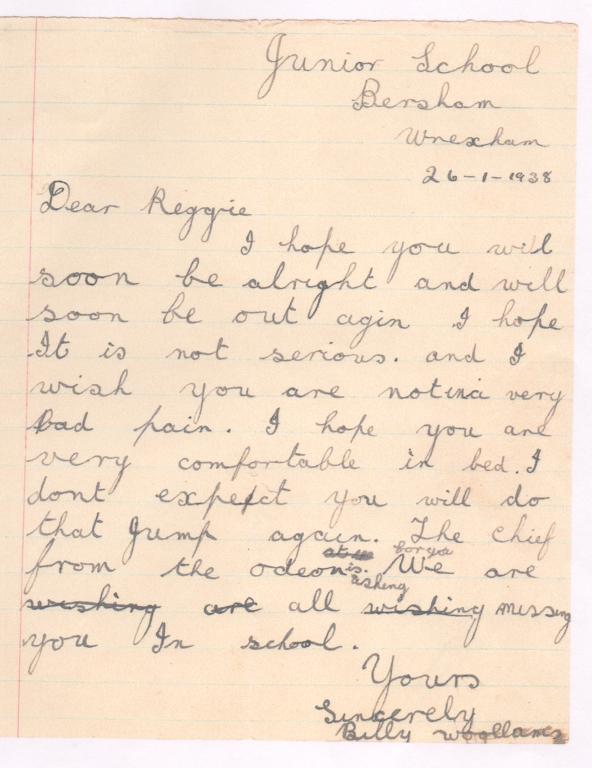 Junior School
Bersham
Wrexham
26-1-1938
Dear Reggie
I hope you will
soon be alright and will
soon be out agin I hope
It is not serious. and I
wish you are notina very
bad pain. I hope you are
very comfortable in bed. I
dont expect you will do
that Jump again. The Chief
from the odeon is asking for you We are
wishing are all wishing missing
you In school.
Yours
Sincerely
Billy Woollams